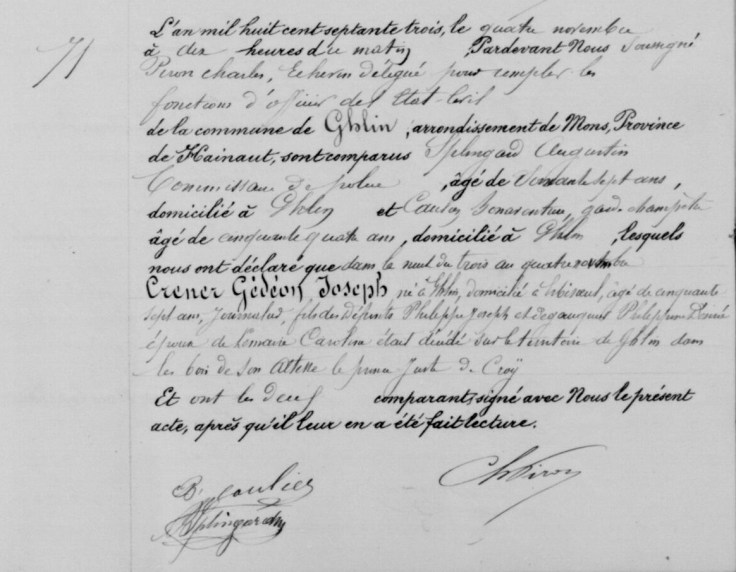 71
L'an mil huit cent septante trois, le quatre novembre
à dix heures du matin, Pardevant Nous Soussigné
Piron Charles, Echevin délégué pour remplir les
fonctions d'officier de l'Etat-Civil
de la commune de Ghlin, arrondissement de Mons, Province
de Hainaut, sont comparus Splingard Augustin
Commissaire de police, âgé de sept ans,
domicilié à Ghlin et Bonaventure, garde champêtre
âgé de cinquante quatre ans, domicilié à Ghlin, lesquels
nous ont déclaré que dans la nuit du trois au quatre novembre
Crener Gédéon, Joseph né à Ghlin, domicilié à âgé de cinquante
sept ans, Journalier, fils des défunts Philippe Joseph et Philippine Désirée
époux de Lemaire Caroline était décédé sur le territoire de Ghlin dans
les bois de Son Altesse le prince Juste de Croÿ
Et ont les deux comparants, signé avec Nous le présent
acte, après qu'il leur en a été fait lecture.
Ch Piron
B.
Splingard